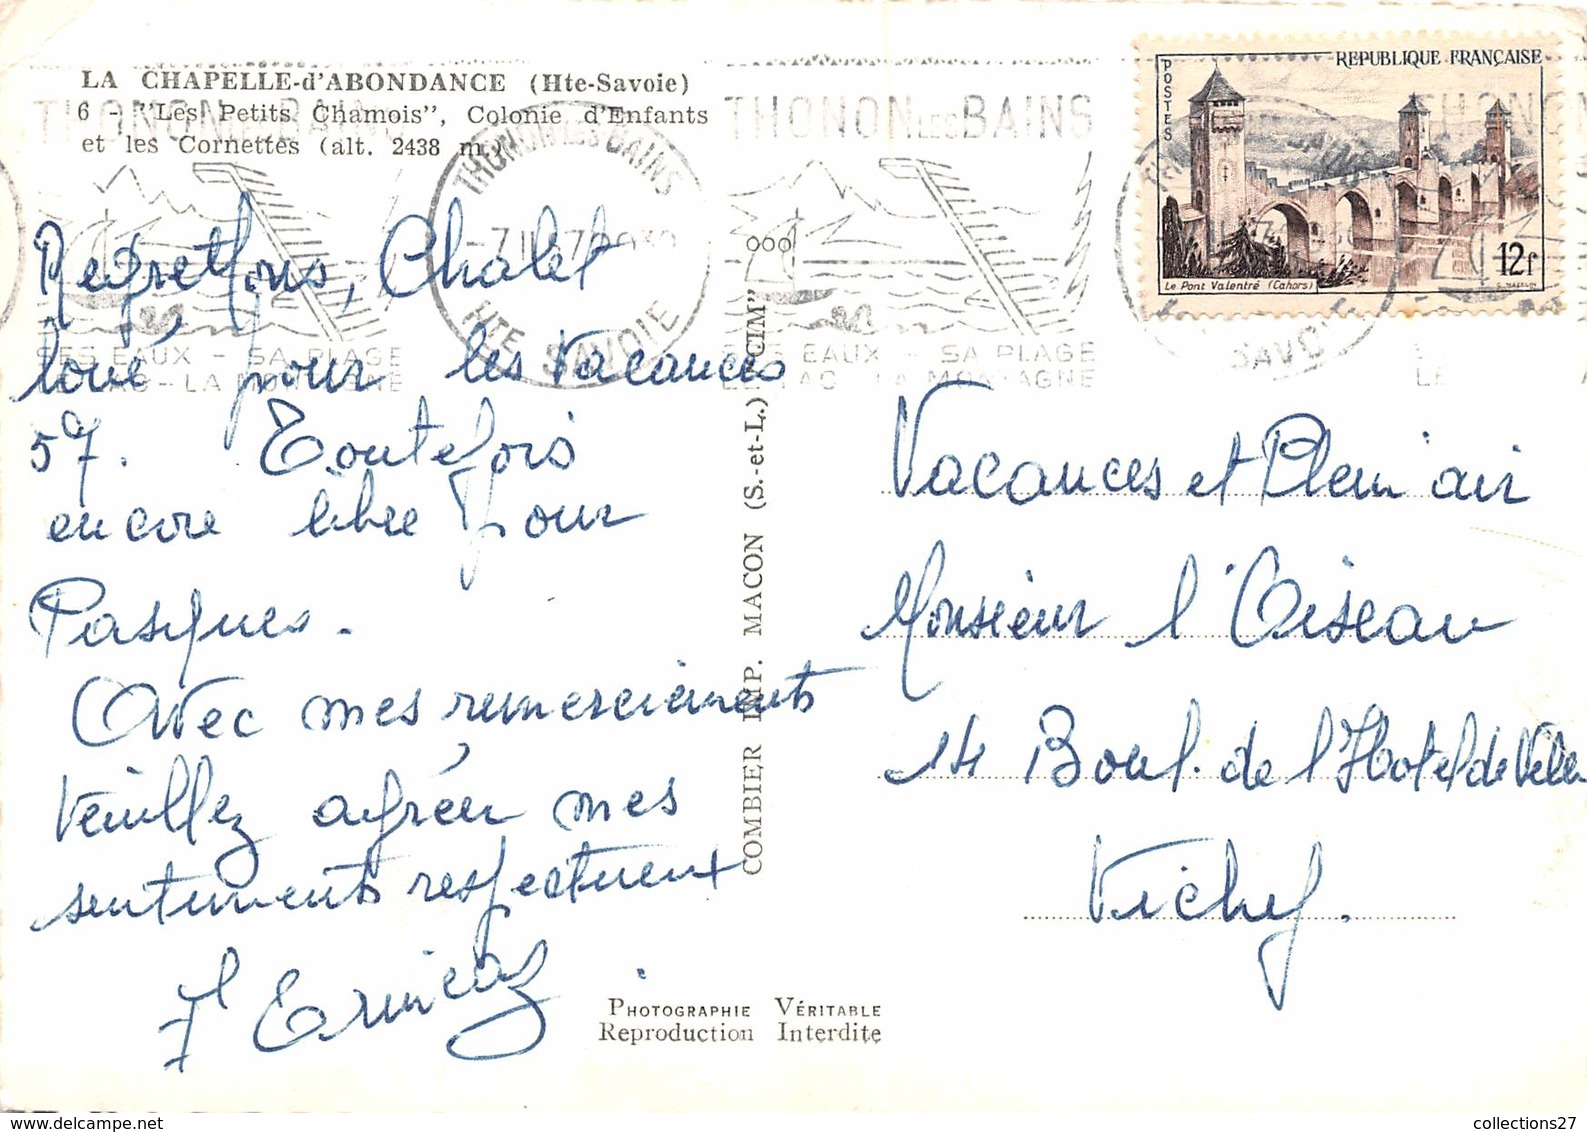 LA CHAPELLE-d'ABONDANCE (Hte-Savoie)
6 - "Les Petits Chamois", Colonie d'Enfants
et les Cornettes (alt. 2438 m.)
THONON LES BAINS
SES EAUX - SA PLAGE
LE LAC - LA MONTAGNE
THONON LES BAINS
HTE SAVOIE
THONON LES BAINS
SES EAUX - SA PLAGE
LE LAC - LA MONTAGNE
REPUBLIQUE FRANÇAISE
POSTES
12f
Le Pont Valentré (Cahors)
Regrettons, Chalet
loué, pour les Vacances
57. Toutefois
encore libre pour
Pasques.
Avec mes remerciements
Veuillez agréer mes
sentiments respectueux
COMBIER IMP. MACON (S.-et-L.) "CIM"
Vacances et Plein air
Monsieur l'Oiseau
14 Boul. de l'Hotel de Ville
Vichy.
PHOTOGRAPHIE VÉRITABLE
Reproduction Interdite
collections27